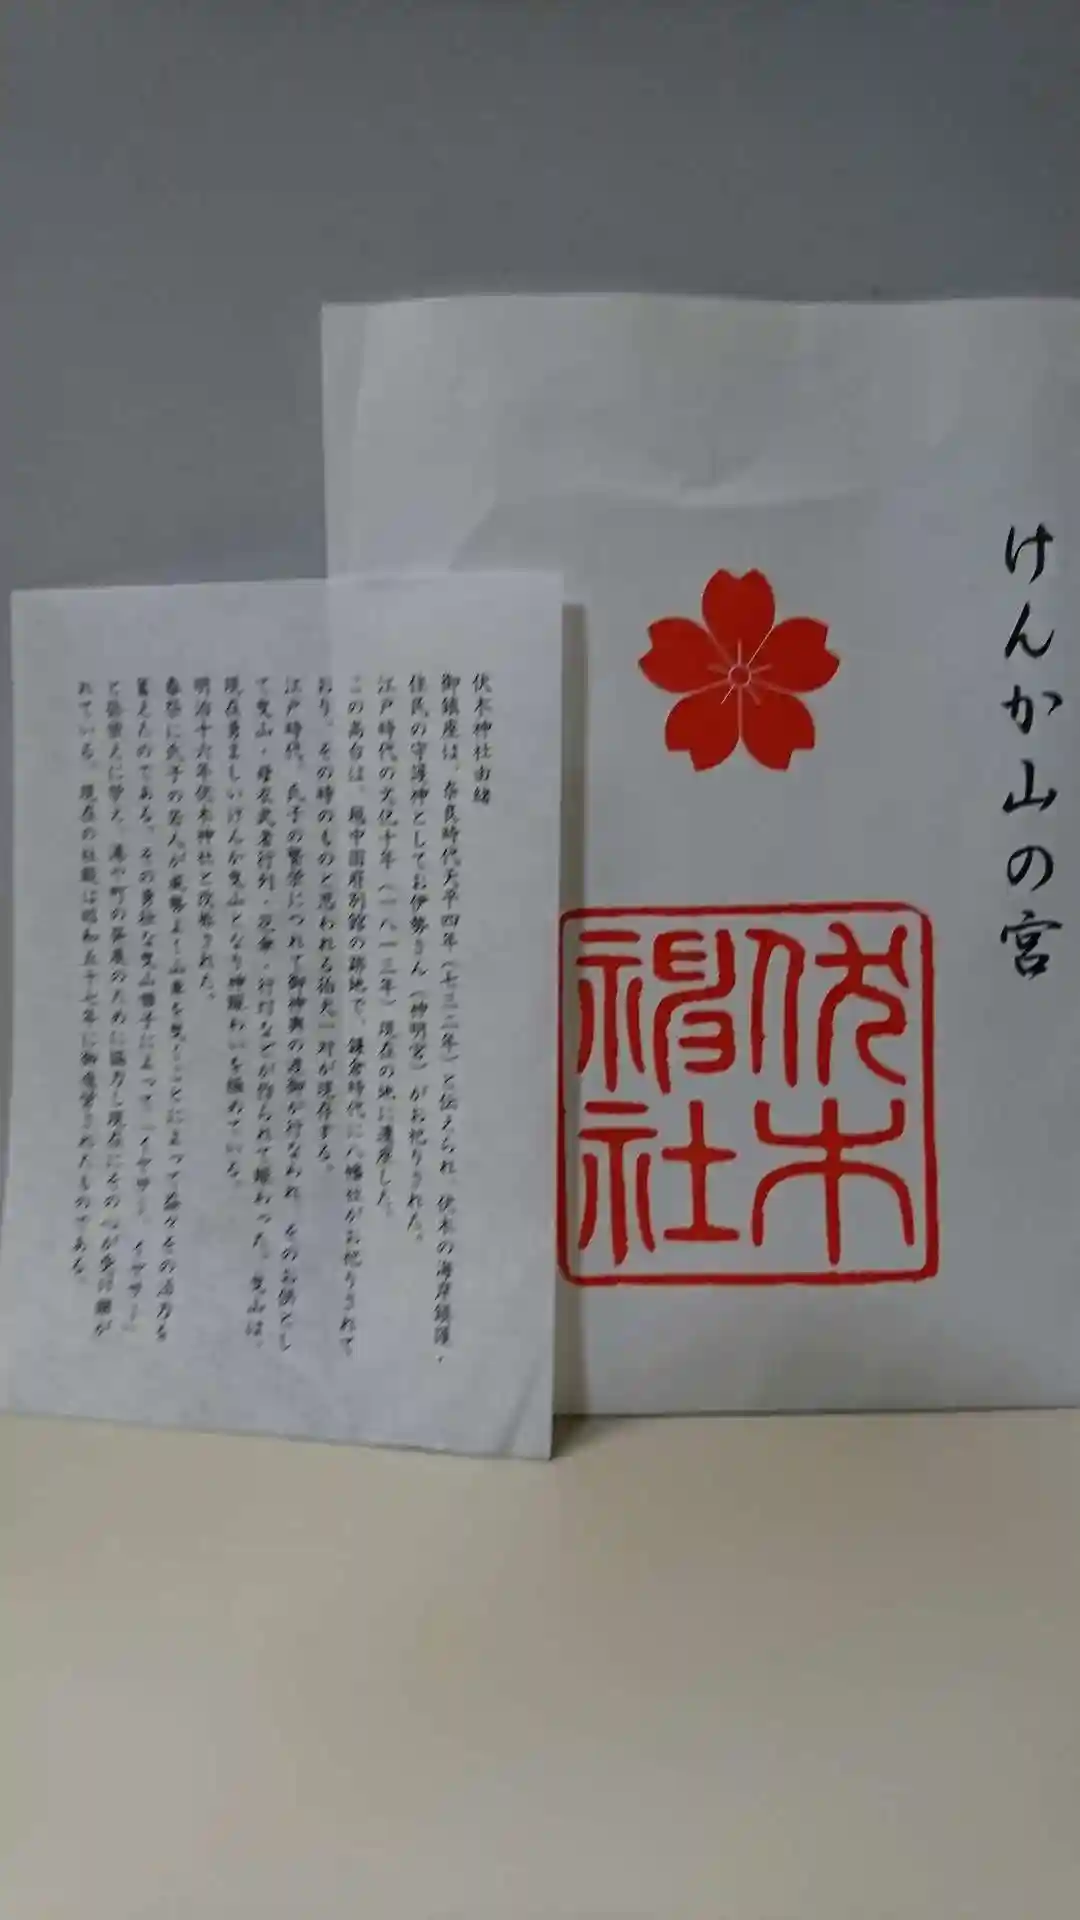 けんか山の宮
伏木
神社
伏木神社由緒
御鎮座は、奈良時代天平四年(七三二年)と伝えられ、伏木の海岸鎮護・
住民の守護神としてお伊勢さん(神明宮)がお祀りされた。
江戸時代の文化十年(一八一三年)現在の地に遷座した。
この高台は、越中国府別館の跡地で、鎌倉時代に八幡社がお祀りされて
おり、その時のものと思われる狛犬一対が現存する。
江戸時代、氏子の繁栄につれて御神輿の渡御が行なわれ、そのお供とし
て曳山・母衣武者行列・花傘・行灯などが作られて賑わった。曳山は、
現在勇ましいけんか曳山となり神賑わいを極めている。
明治十六年伏木神社と改称された。
春祭に氏子の若人が威勢よく山車を曳くことによって益々その活力を
蓄えたのである。その勇壮な曳山囃子によって「イヤサー、イヤサー」
と
港や町の発展のために協力し現在にその心が受け継が
れている。現在の社殿は昭和五十七年に御造営されたものである。